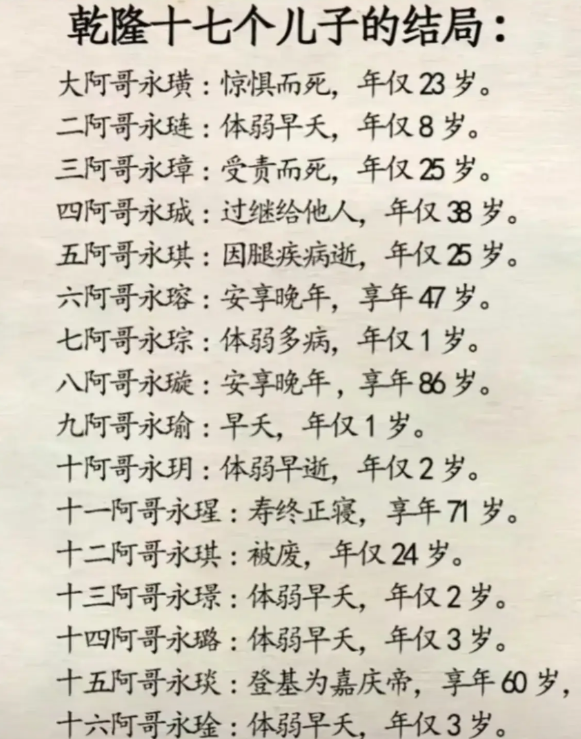 乾隆十七个儿子的结局：
大阿哥永璜：惊惧而死，年仅23岁。
二阿哥永琏：体弱早夭，年仅8岁。
三阿哥永璋：受责而死，年仅25岁。
四阿哥永珹：过继给他人，年仅38岁。
五阿哥永琪：因腿疾病逝，年仅25岁。
六阿哥永瑢：安享晚年，享年47岁。
七阿哥永琮：体弱多病，年仅1岁。
八阿哥永璇：安享晚年，享年86岁。
九阿哥永瑜：早夭，年仅1岁。
十阿哥永玥：体弱早逝，年仅2岁。
十一阿哥永瑆：寿终正寝，享年71岁。
十二阿哥永琪：被废，年仅24岁。
十三阿哥永璟：体弱早夭，年仅2岁。
十四阿哥永璐：体弱早夭，年仅3岁。
十五阿哥永琰：登基为嘉庆帝，享年60岁，
十六阿哥永琻：体弱早夭，年仅3岁。